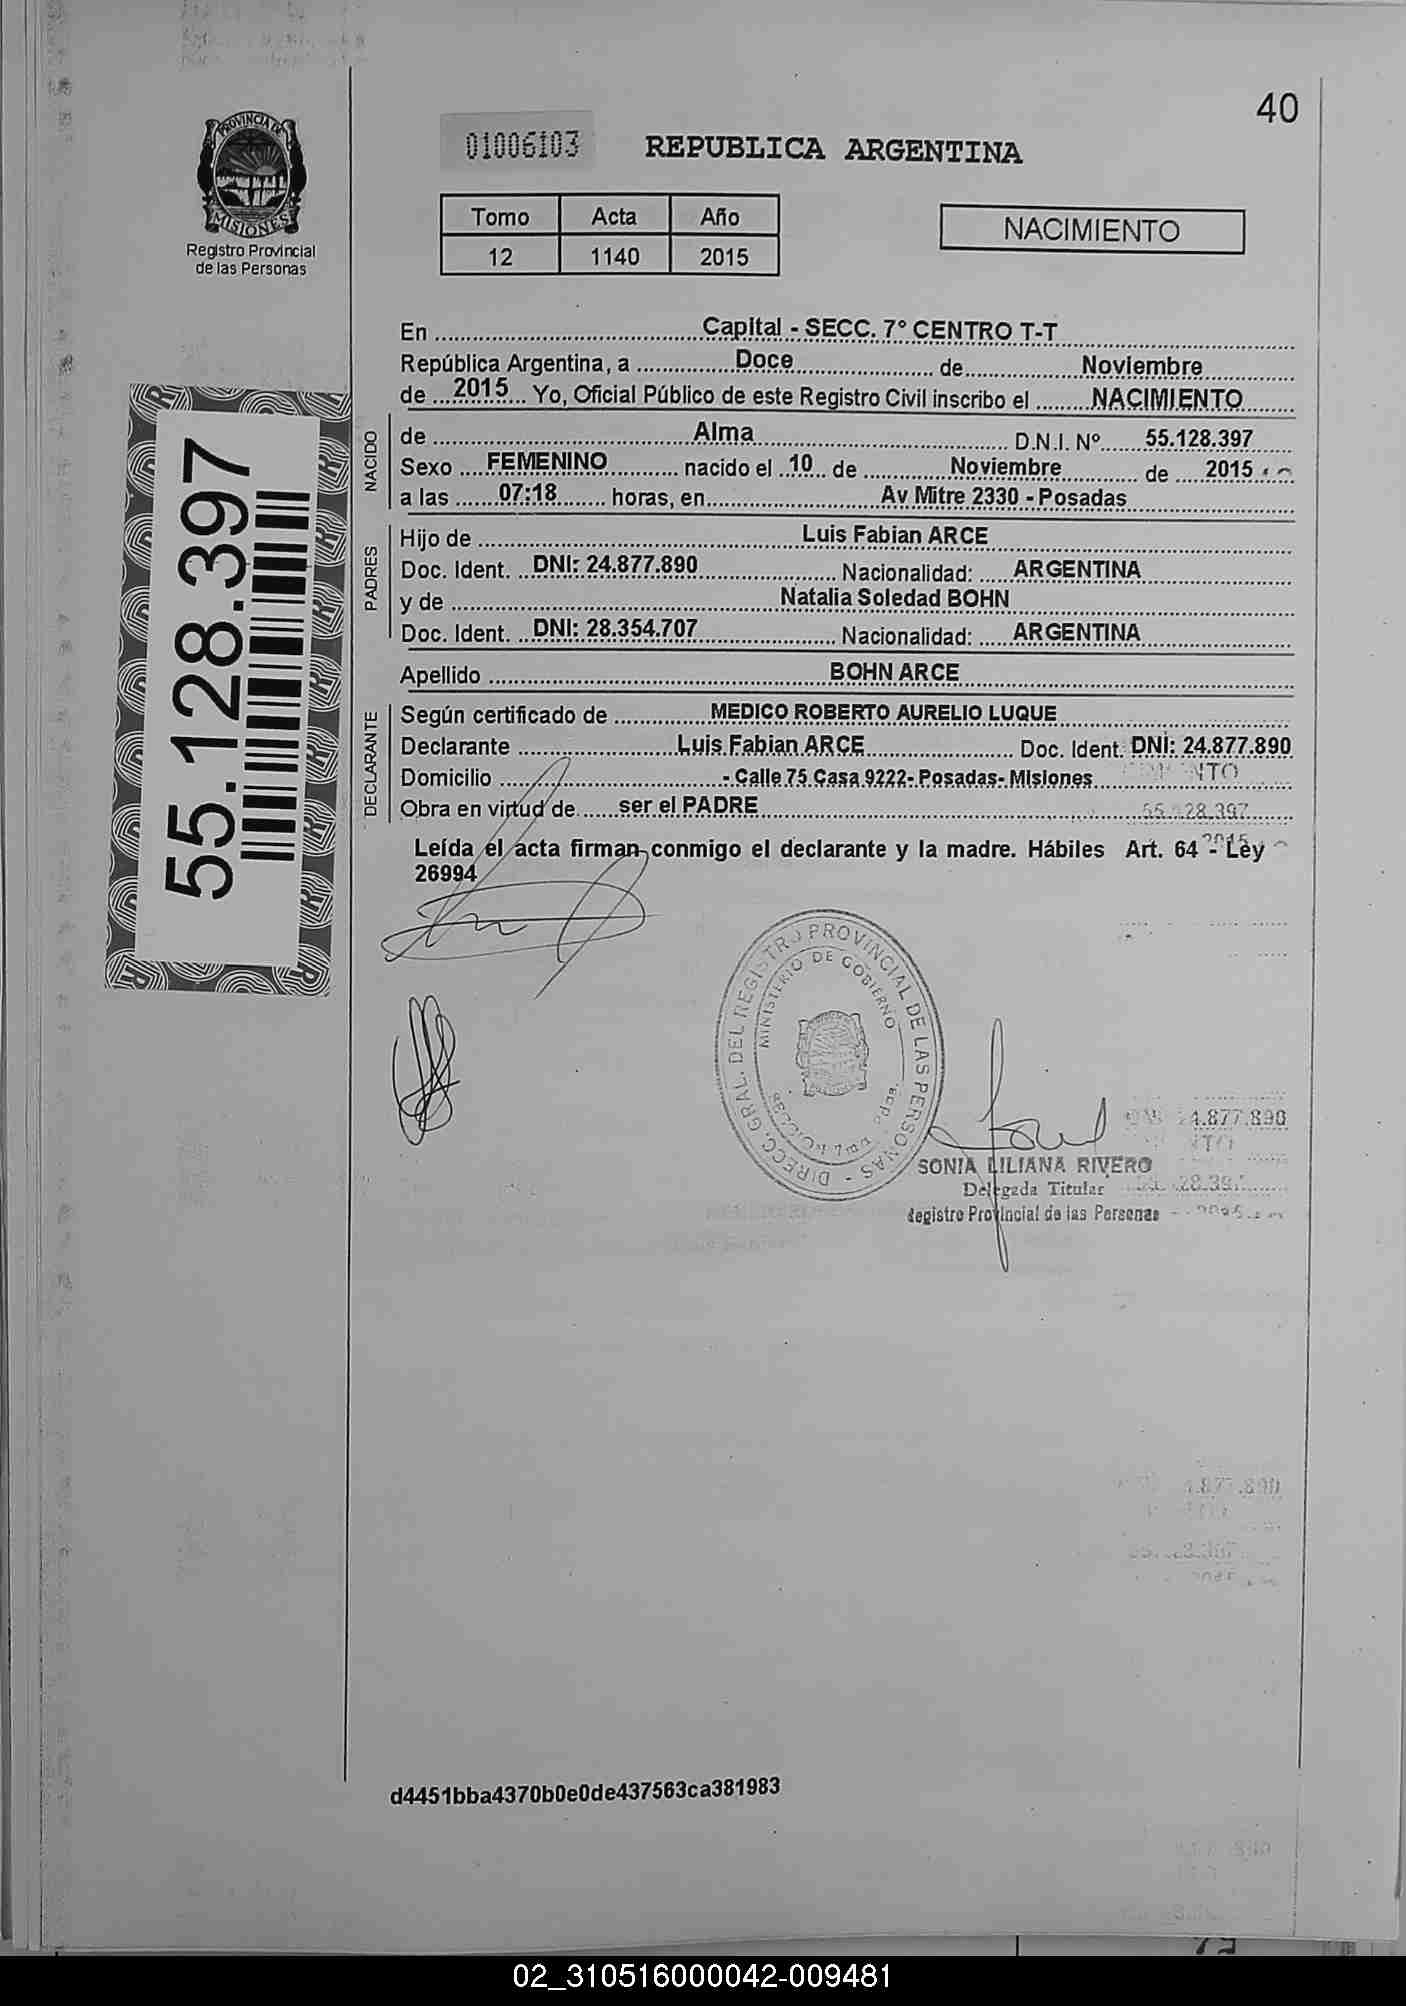 40
PROVINCIA DE
MISIONES
Registro Provincial
de las Personas
01006103
REPUBLICA ARGENTINA
Tomo Acta Año
12 1140 2015
NACIMIENTO
En Capital - SECC. 7° CENTRO T-T
República Argentina, a Doce de Noviembre
de 2015 Yo, Oficial Público de este Registro Civil inscribo el NACIMIENTO
NACIDO
de Alma D.N.I. Nº 55.128.397
Sexo FEMENINO nacido el 10 de Noviembre de 2015
a las 07:18 horas, en Av Mitre 2330 - Posadas
PADRES
Hijo de Luis Fabian ARCE
Doc. Ident. DNI: 24.877.890 Nacionalidad: ARGENTINA
y de Natalia Soledad BOHN
Doc. Ident. DNI: 28.354.707 Nacionalidad: ARGENTINA
Apellido BOHN ARCE
DECLARANTE
Según certificado de MEDICO ROBERTO AURELIO LUQUE
Declarante Luis Fabian ARCE Doc. Ident. DNI: 24.877.890
Domicilio - Calle 75 Casa 9222- Posadas- Misiones
Obra en virtud de ser el PADRE
Leída el acta firman conmigo el declarante y la madre. Hábiles Art. 64 - Ley
26994
55.128.397
DIRECC. GRAL. DEL REGISTRO PROVINCIAL DE LAS PERSONAS -
MINISTERIO DE GOBIERNO
SONIA LILIANA RIVERO
Delegada Titular
Registro Provincial de las Personas
d4451bba4370b0e0de437563ca381983
02_310516000042-009481